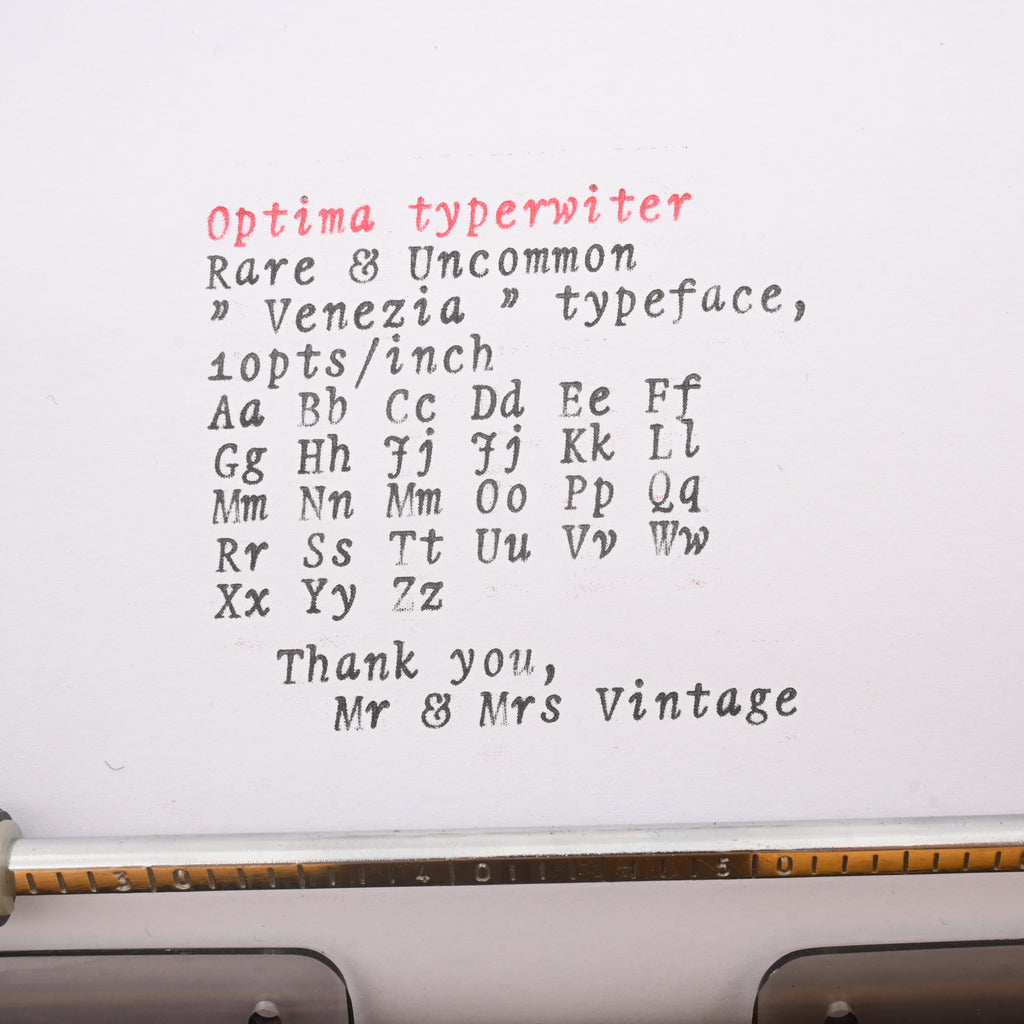 Optima typerwiter
Rare & Uncommon
” Venezia ” typeface,
10pts/inch
Aa Bb Cc Dd Ee Ff
Gg Hh Jj Jj Kk Ll
Mm Nn Mm Oo Pp Qq
Rr Ss Tt Uu Vv Ww
Xx Yy Zz
Thank you,
Mr & Mrs Vintage
30 40 50